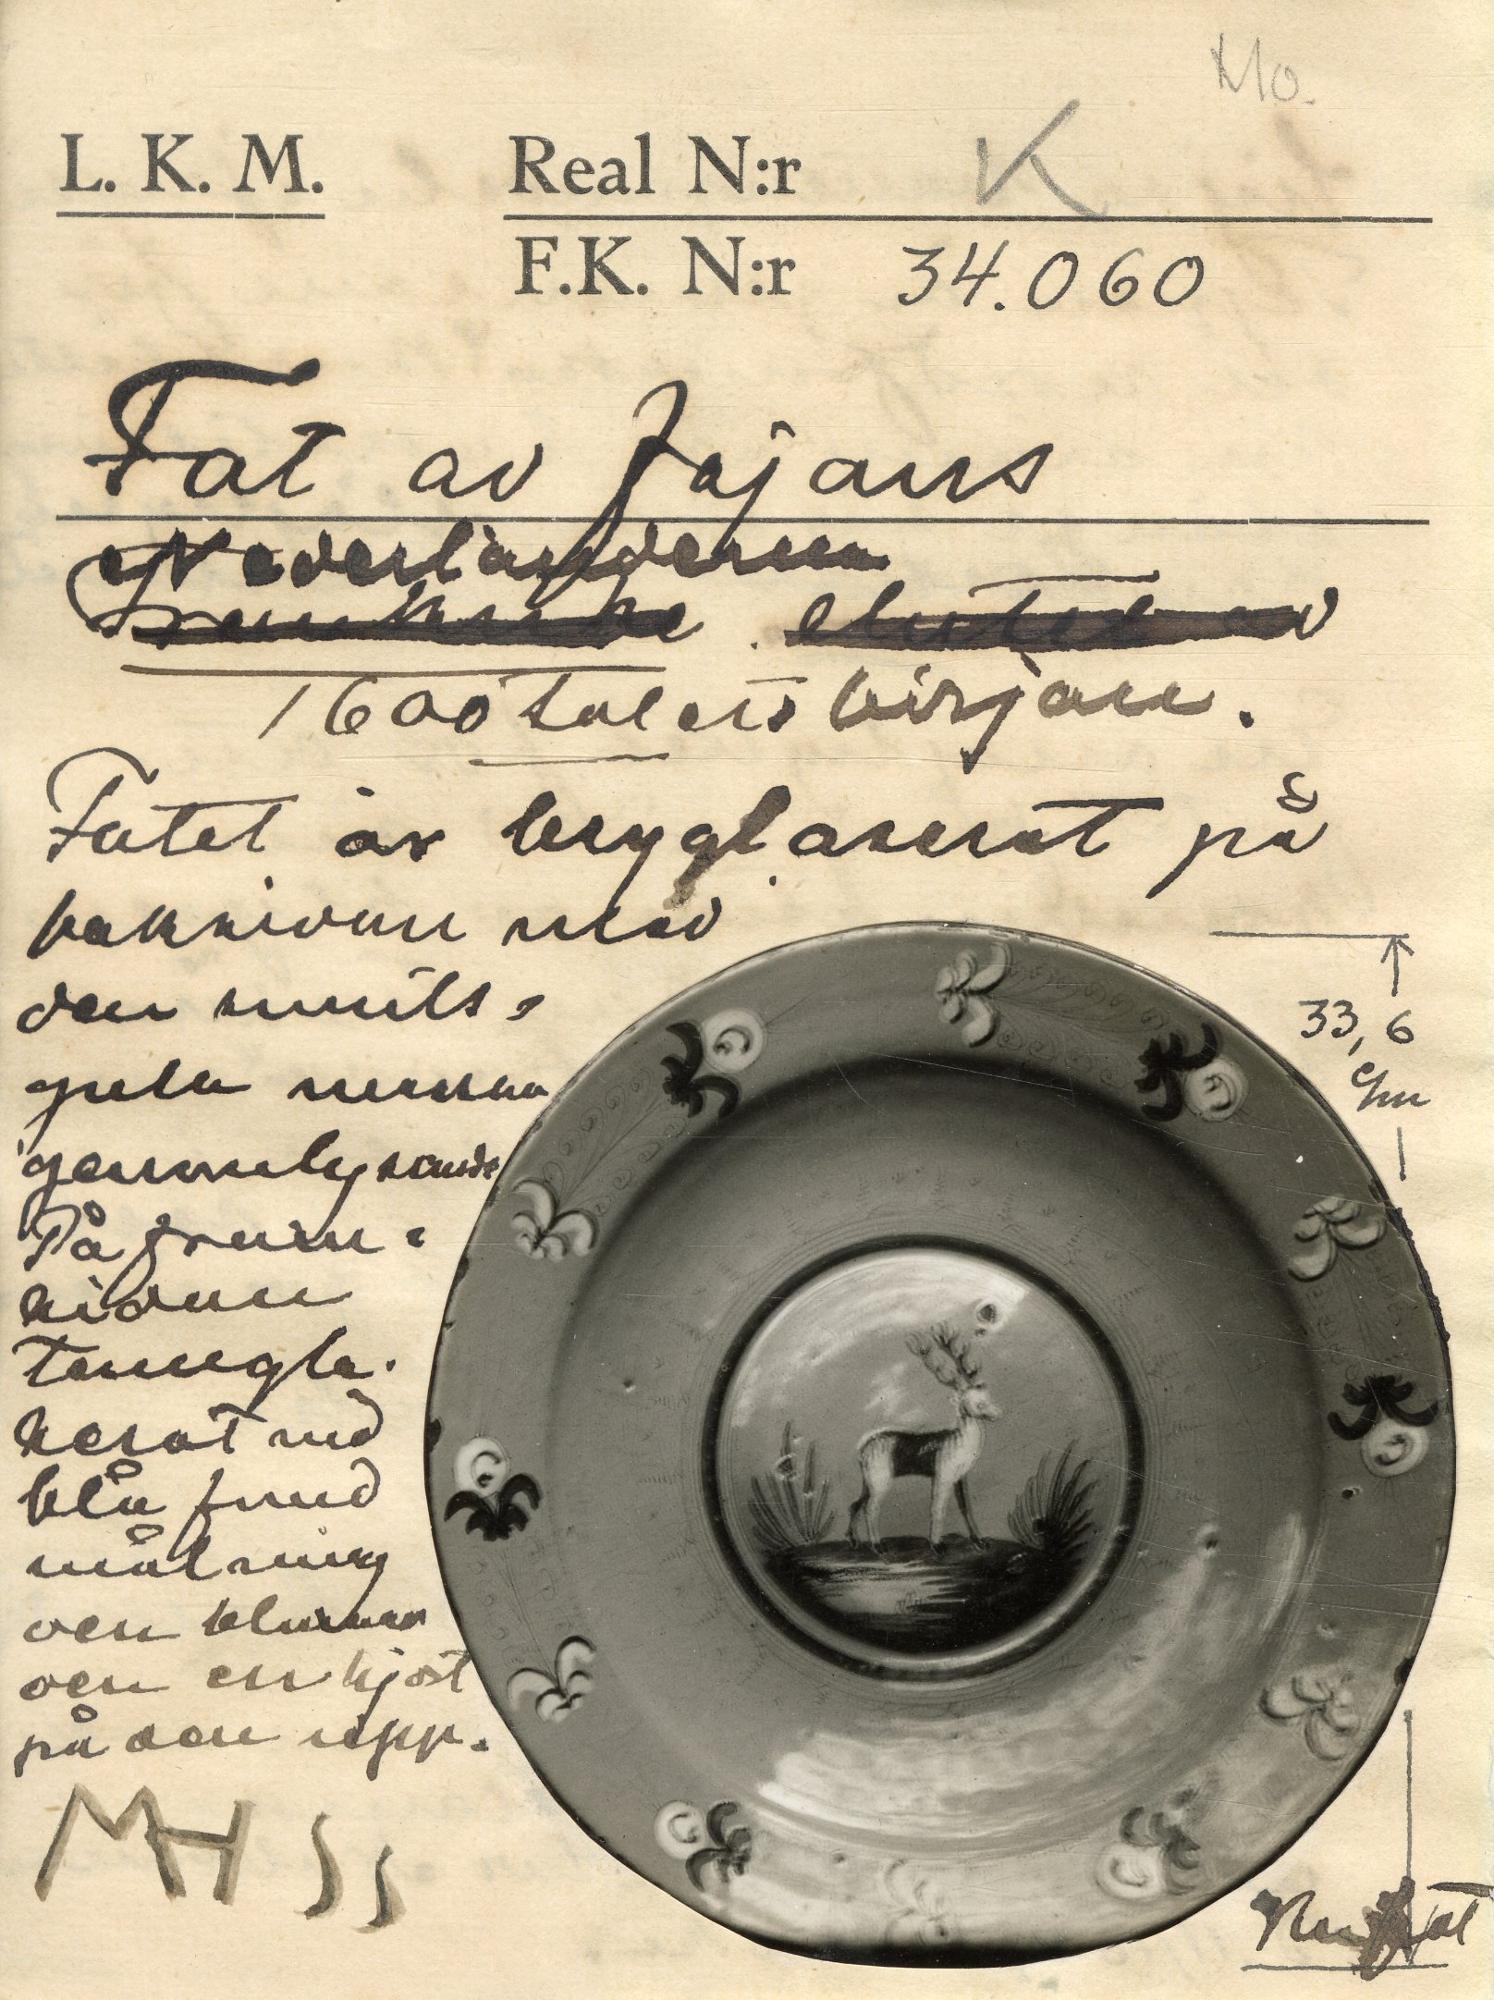 Mo.
L. K. M.
Real N:r K
F.K. N:r 34.060
Fat av fajans
Nederländerna
Frankrike . slutet av
1600 talets början.
Fatet är blyglaserat på
baksidan med
den smuts-
gula massan
genomlysande
På fram-
sidan
tenngla-
serat med
blå fond
målning
och en hjort
på den upp.
33,6
c/m
MH SS